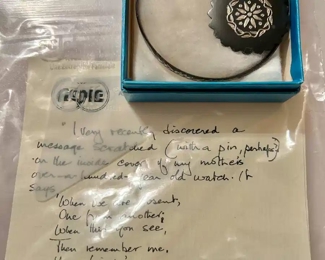 "I very recently discovered a
message scratched (with a pin, perhaps)
on the inside cover of my mother's
over-a-hundred-year old watch. It
says,
'When we are absent,
One from another,
When this you see,
Then remember me,